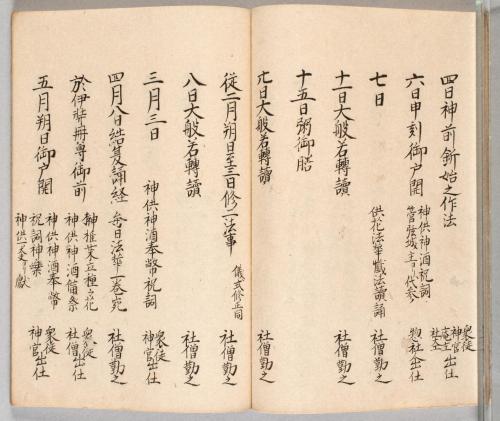 四日神前釿始之作法
衆徒
神官出仕
社主
六日申刻御戸開
神供神酒祝詞
菅弦城主ヨリ代参
惣社出仕
七日
供花法華懺法讀誦
社僧勤之
十一日大般若轉讀
社僧勤之
十五日粥御膳
十六日大般若轉讀
社僧勤之
從二月朔日至三日修二法事
儀式修正同
社僧勤之
八日大般若轉讀
社僧勤之
三月三日
神供神酒奉幣祝詞
衆徒
神官出仕
四月八日結夏誦経
毎日法華一巻宛
社僧勤之
於伊弉冊尊御前
種々花
神供神酒備祭
衆徒
社僧出仕
五月朔日御戸開
神供神酒奉幣
祝詞神樂
神供
ヨリ獻
衆徒
神官出仕